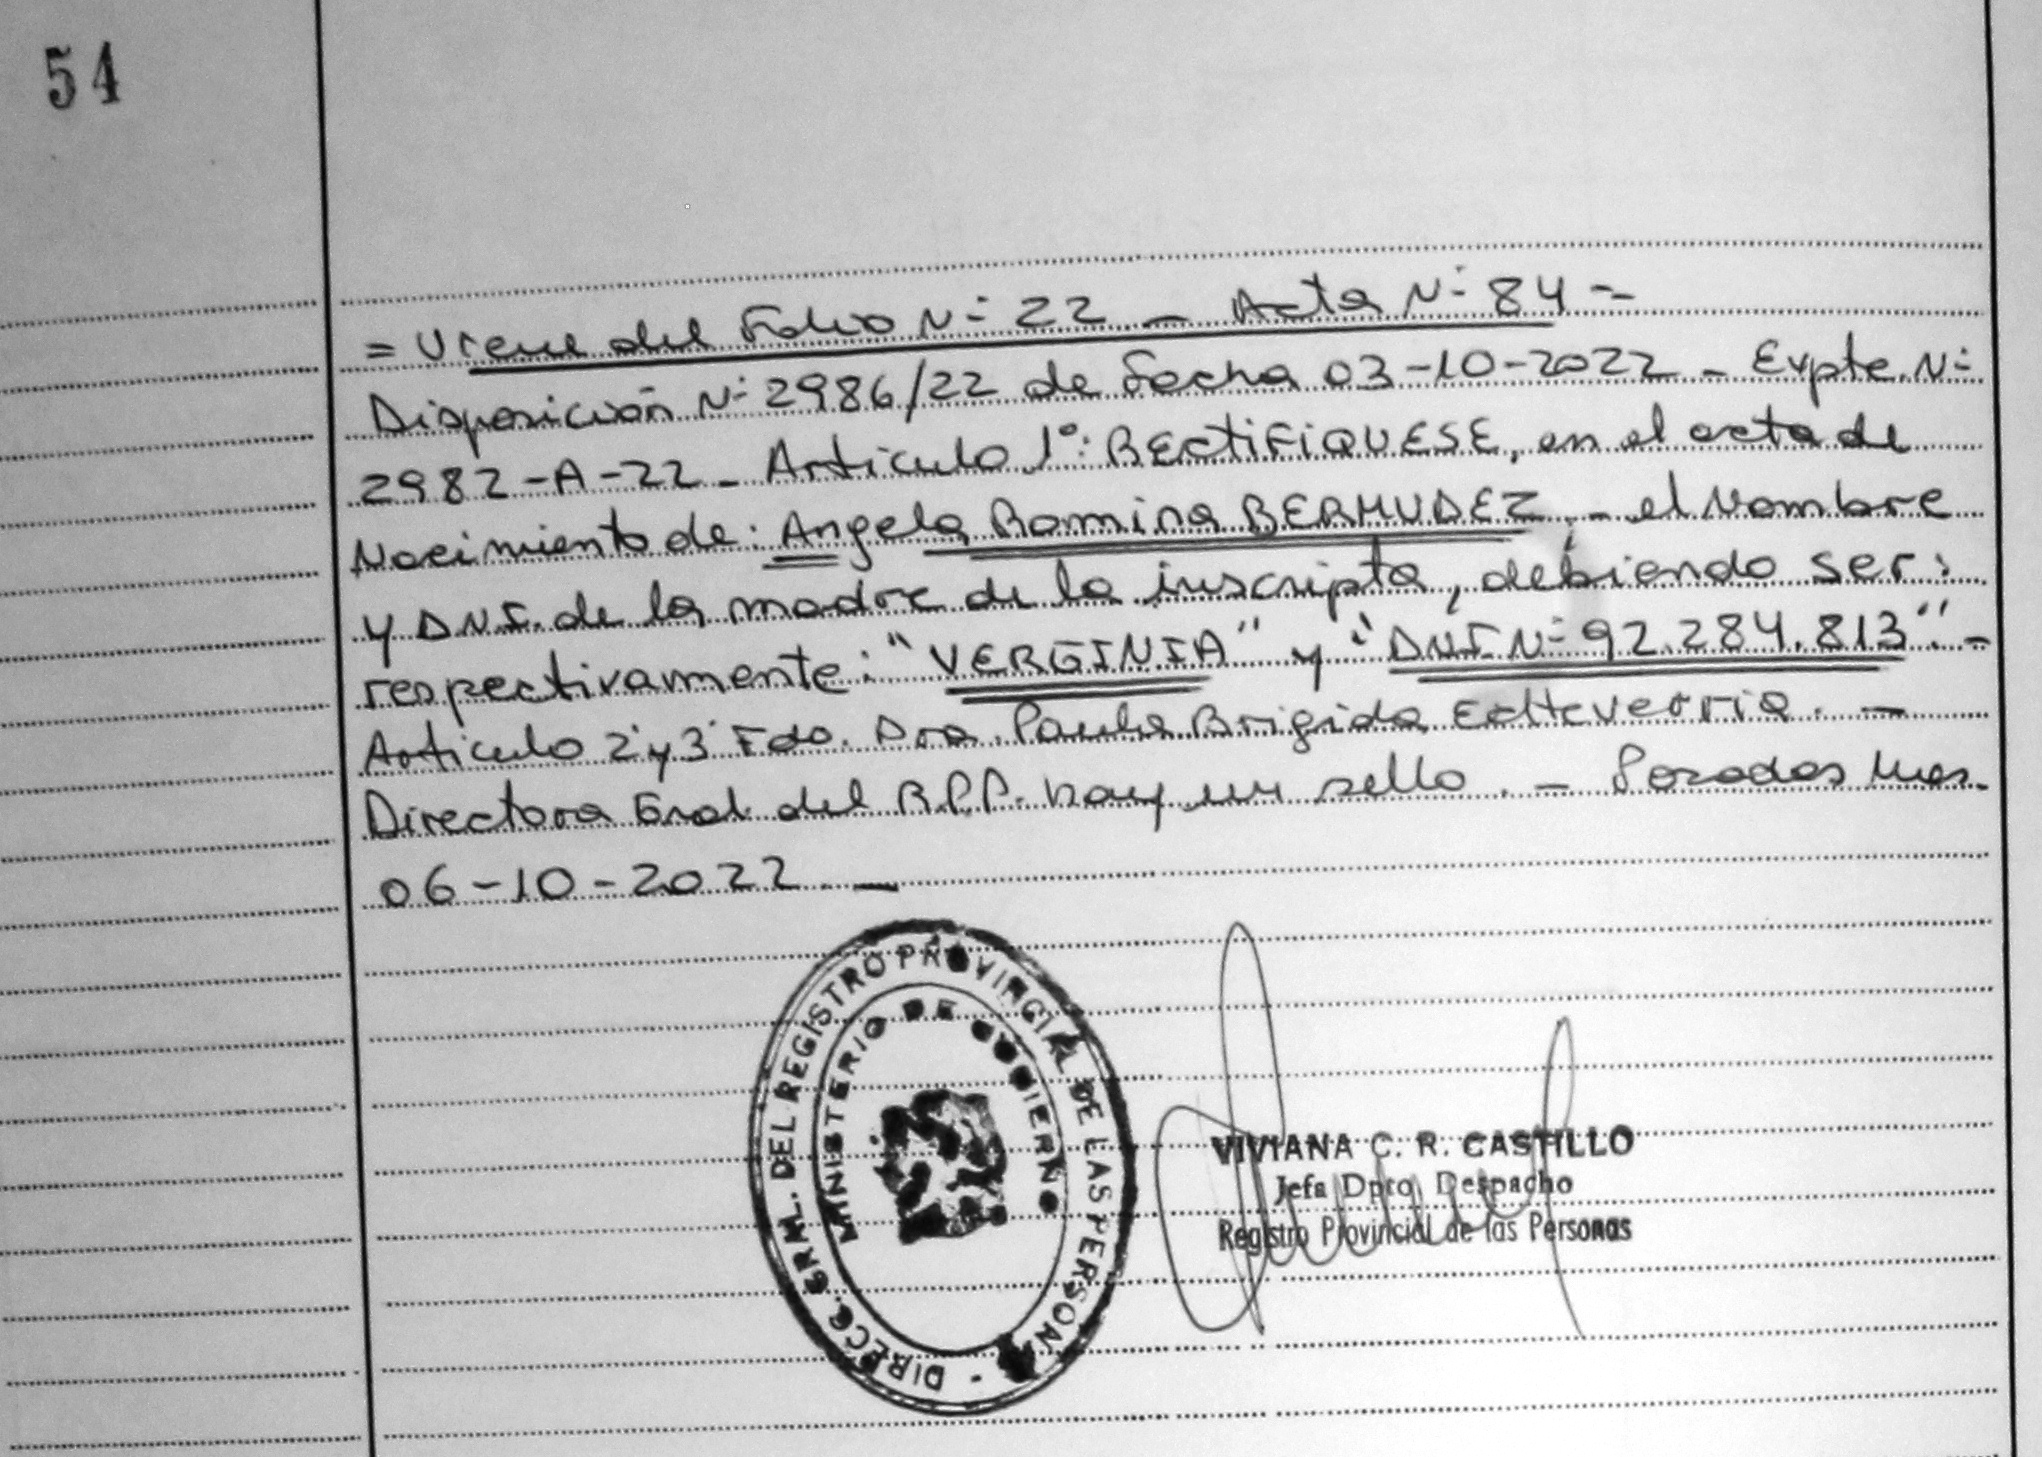 54
= Viene del Folio N: 22 - Acta N: 84 =
Disposición N: 2986/22 de Fecha 03-10-2022 - Expte. N:
2982-A-22 - Articulo 1°: RECTIFIQUESE, en el acta de
Nacimiento de: Angela Romina BERMUDEZ, - el Nombre
y DNI. de la madre de la inscripta, debiendo ser:
respectivamente: "VERGINIA" y "DNI N: 92.284.813" -
Articulo 2 y 3 Fdo. Dra. Paula Brigida Echeverria. -
Directora Gral. del R.P.P. hay un sello. - Posadas Mnes.
06-10-2022 -
DIRECC. GRAL. DEL REGISTRO PROVINCIAL DE LAS PERSONAS -
MINISTERIO DE GOBIERNO
VIVIANA C. R. CASTILLO
Jefa Dpto. Despacho
Registro Provincial de las Personas